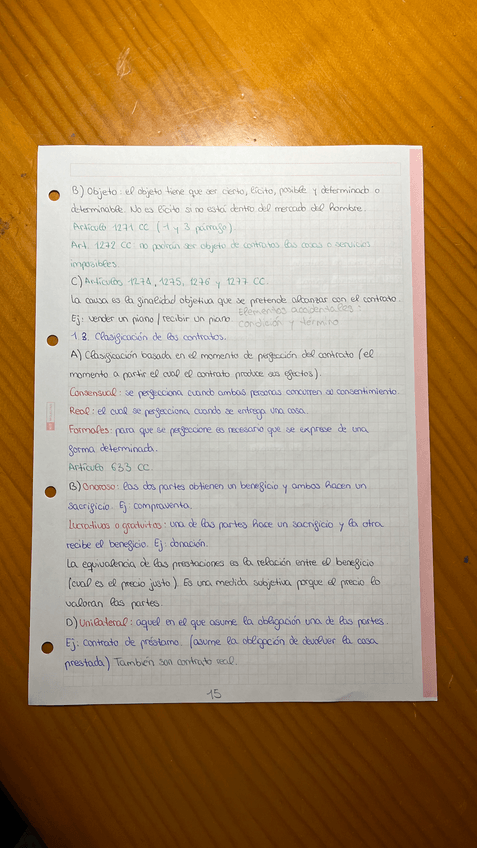 B) Objeto: el objeto tiene que ser cierto, lícito, posible y determinado o
determinable. No es lícito si no está dentro del mercado del hombre.
Artículo 1271 CC (1 y 3 párrafo).
Art. 1272 CC: no podrán ser objeto de contratos las cosas o servicios
imposibles.
C) Artículos 1274, 1275, 1276 y 1277 CC.
La causa es la finalidad objetiva que se pretende alcanzar con el contrato.
Ej: vender un piano / recibir un piano.
Elementos accidentales:
condición y término
1.8. Clasificación de los contratos.
A) Clasificación basada en el momento de perfección del contrato (el
momento a partir el cual el contrato produce sus efectos).
Consensual: se perfecciona cuando ambas personas concurren su consentimiento.
Real: el cual se perfecciona cuando se entrega una cosa.
Formales: para que se perfeccione es necesario que se exprese de una
forma determinada.
Artículo 633 CC.
B) Oneroso: las dos partes obtienen un beneficio y ambas hacen un
sacrificio. Ej. compraventa.
Lucrativos o gratuitos: una de las partes hace un sacrificio y la otra
recibe el beneficio. Ej: donación.
La equivalencia de las prestaciones es la relación entre el beneficio
(cual es el precio justo). Es una medida subjetiva porque el precio lo
valoran las partes.
D) Unilateral: aquel en el que asume la obligación una de las partes.
Ej: contrato de préstamo. (asume la obligación de devolver la cosa
prestada) También son contrato real.
15